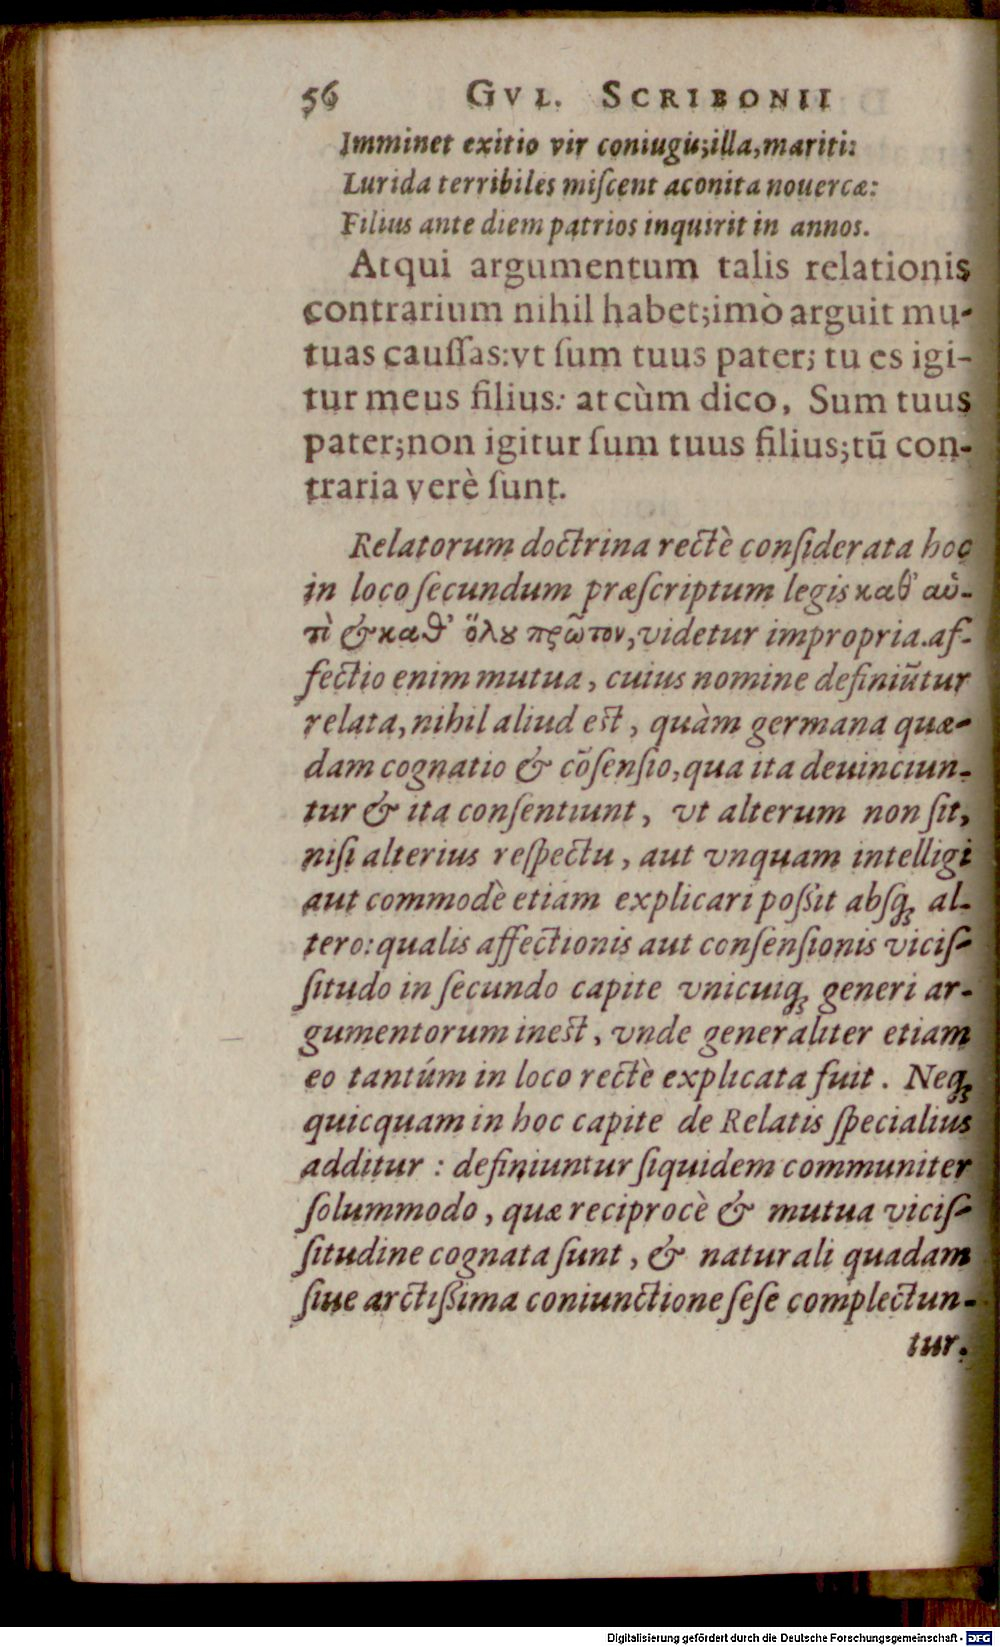 56 GVL. SCRIBONII
Imminet exitio vir coniugis;illa,mariti:
Lurida terribiles miſcent aconita nouercæ:
Filius ante diem patrios inquirit in annos.
Atqui argumentum talis relationis
contrarium nihil habet;imò arguit mu-
tuas cauſſas:vt ſum tuus pater; tu es igi-
tur meus filius: at cùm dico, Sum tuus
pater;non igitur ſum tuus filius;tū con-
traria verè ſunt.
Relatorum doctrina rectè conſiderata hoc
in loco ſecundum præſcriptum legis καθ' αὑ-
τὸ & καθ' ὅλου πρῶτον, videtur impropria.af-
fectio enim mutua, cuius nomine definiūtur
relata, nihil aliud est, quàm germana quæ-
dam cognatio & cōſenſio, qua ita deuinciun-
tur & ita conſentiunt, vt alterum non ſit,
niſi alterius reſpectu, aut vnquam intelligi
aut commodè etiam explicari poſſit abſq; al-
tero: qualis affectionis aut conſenſionis viciſ-
ſitudo in ſecundo capite vnicuiq; generi ar-
gumentorum inest, vnde generaliter etiam
eo tantúm in loco rectè explicata fuit. Neq;
quicquam in hoc capite de Relatis ſpecialius
additur : definiuntur ſiquidem communiter
ſolummodo, quæ reciprocè & mutua viciſ-
ſitudine cognata ſunt, & naturali quadam
ſiue arctiſſima coniunctione ſeſe complectun-
tur.
Digitalisierung gefördert durch die Deutsche Forschungsgemeinschaft - DFG